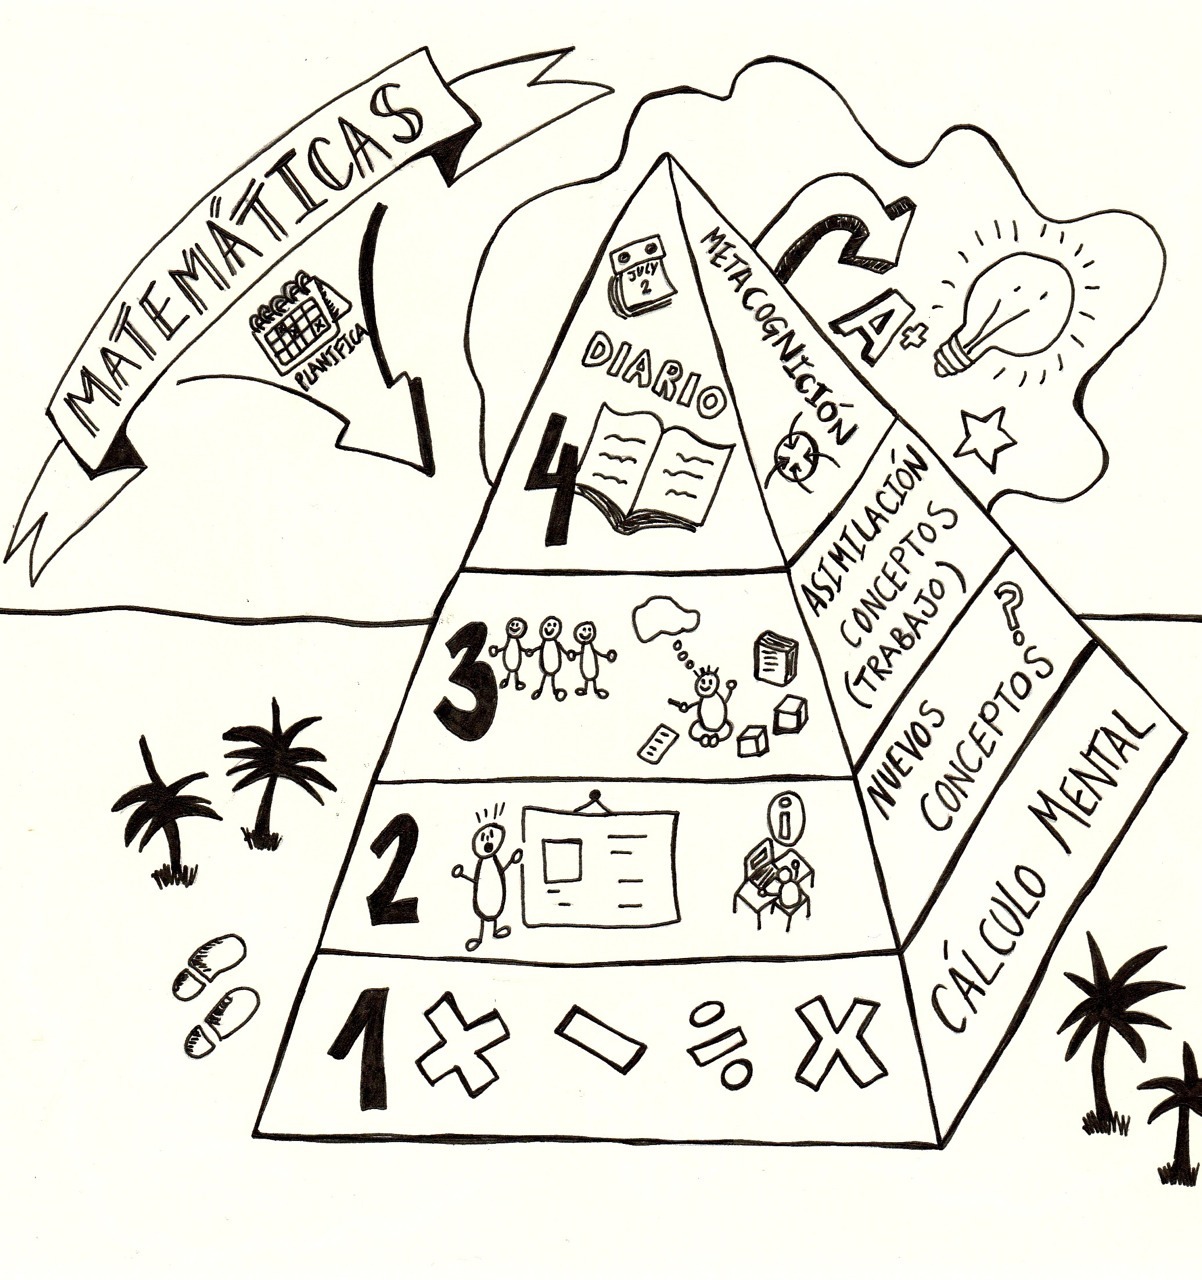 MATEMÁTICAS
PLANIFICA
JULY
2
DIARIO
4
METACOGNICIÓN
A+
3
ASIMILACIÓN
CONCEPTOS
(TRABAJO)
2
i
?
NUEVOS
CONCEPTOS
1
CÁLCULO MENTAL